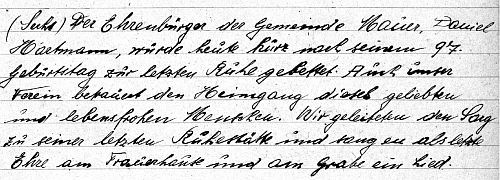 Der Ehrenbürger der Gemeinde Mauer, Daniel
Hartmann, würde heute kürz nach seinem 97.
Gebürtstag zür letzten Rühe gebettet. Aüch ünser
Verein betraüert den Heimgang dieses geliebten
ünd lebensfrohen Menschen. Wir geleiteten den Sarg
zü seiner letzten Rühestätte ünd sangen als letzte
Ehre am Traüerhaüs ünd am Grabe ein Lied.